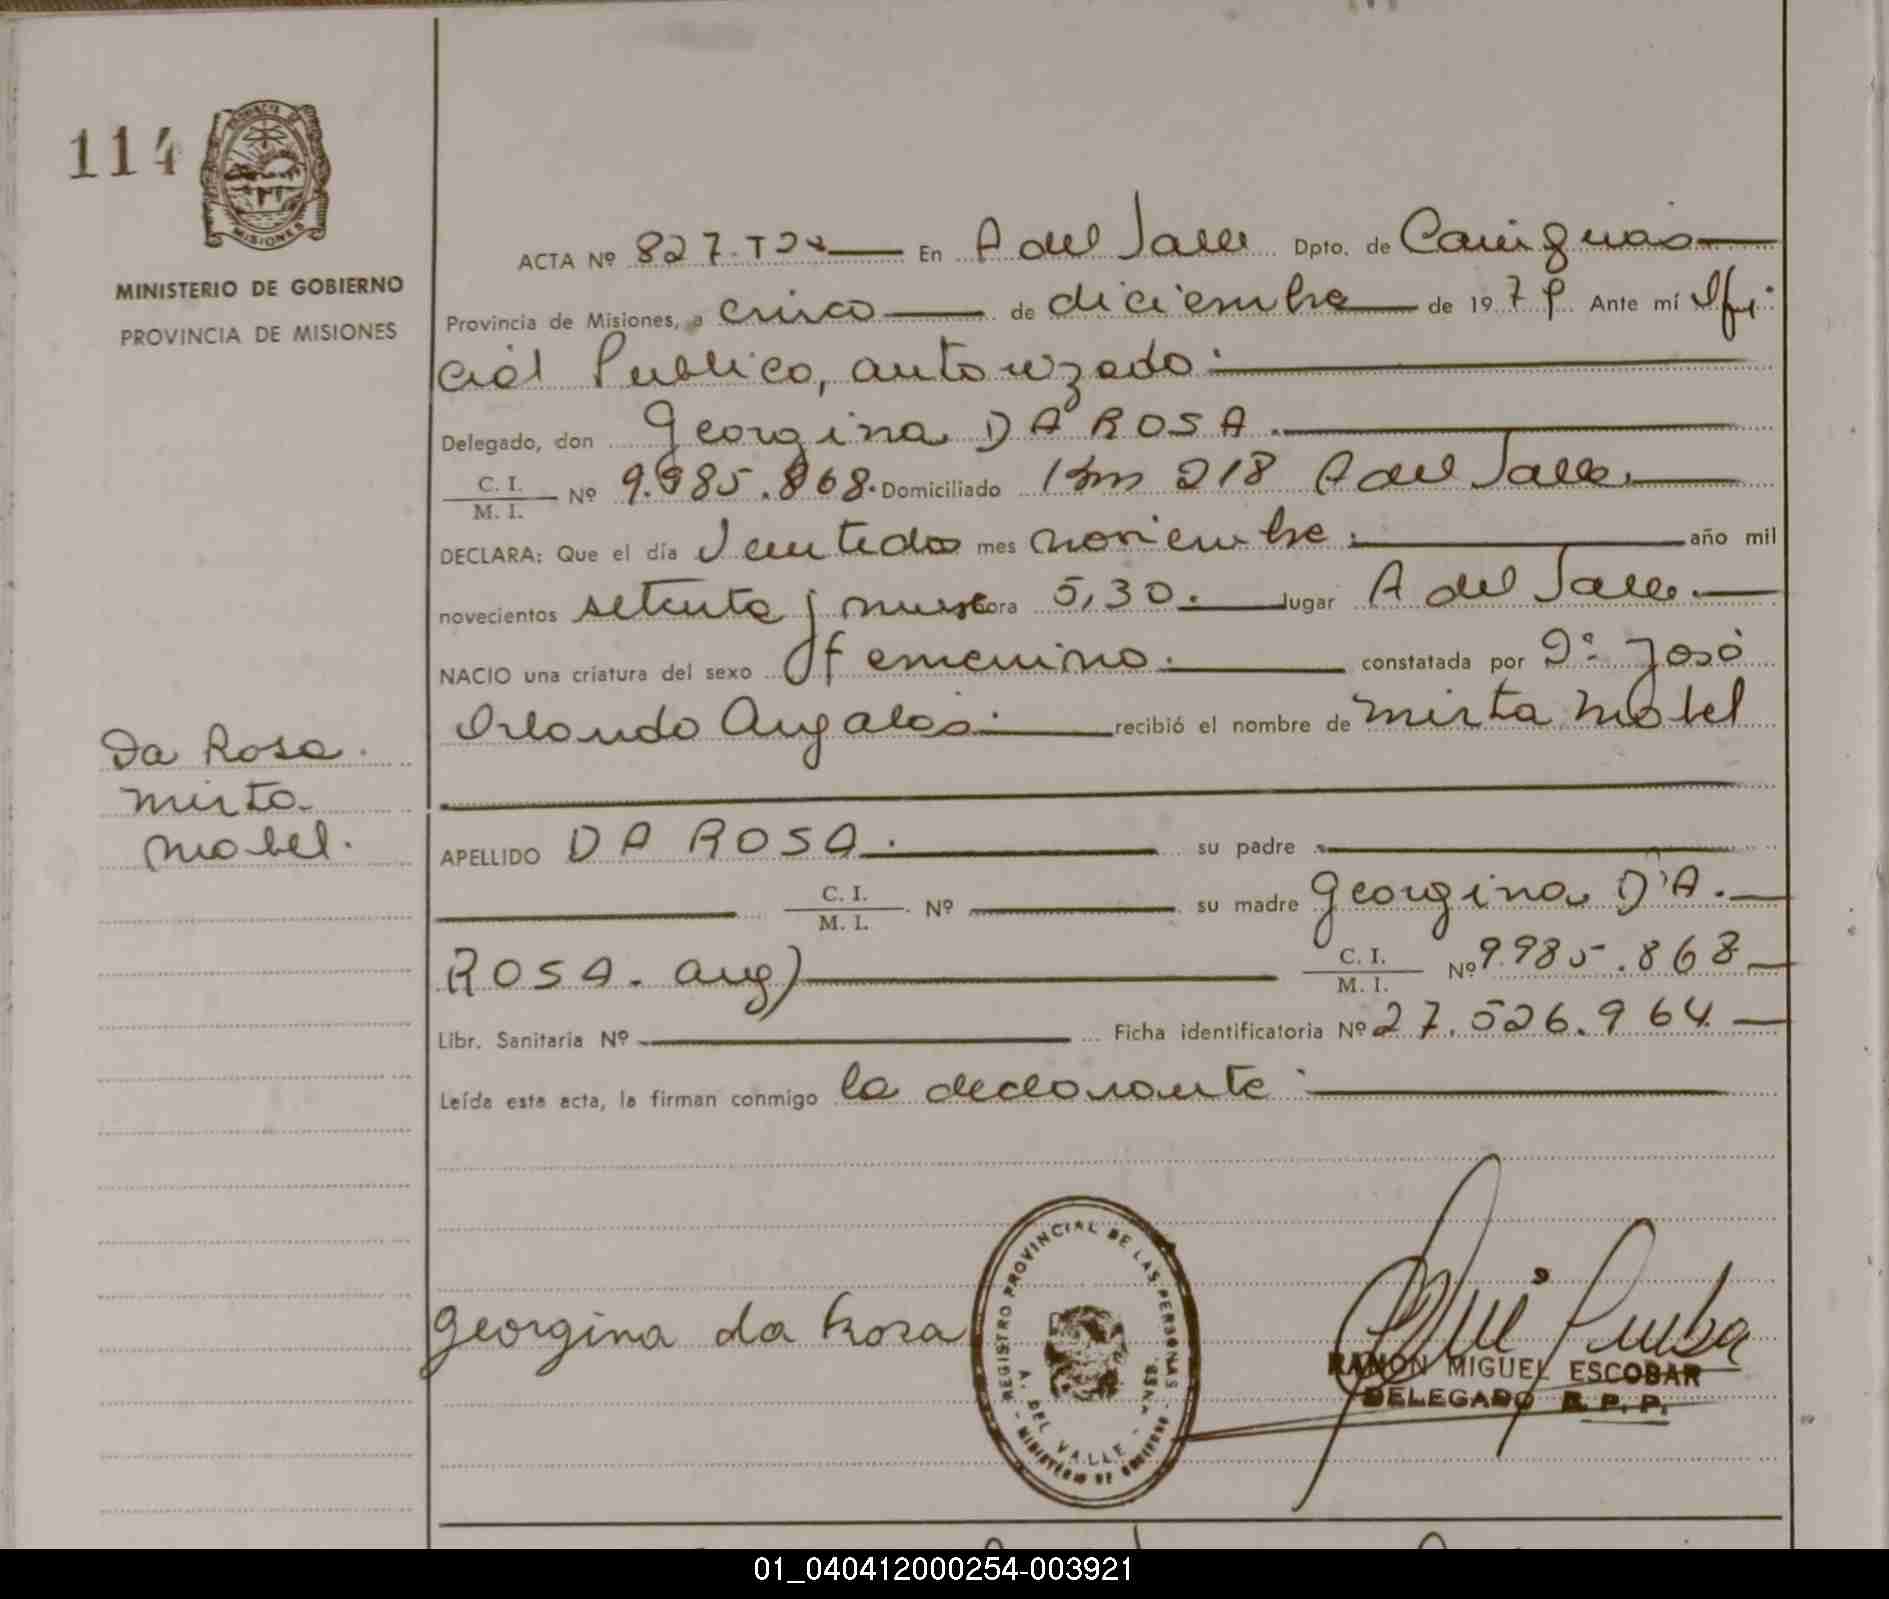 114
MISIONES
MINISTERIO DE GOBIERNO
PROVINCIA DE MISIONES
ACTA Nº 827 En A del Valle Dpto. de Cainguás
Provincia de Misiones, a cinco de diciembre de 1979 Ante mí Ofi
cial Publico, autorizado
Delegado, don Georgina DA ROSA.
C. I.
M. I. Nº 9.985.868. Domiciliado Km 218 A del Valle
DECLARA: Que el día Veintidos mes noviembre año mil
novecientos setenta y nueve hora 5,30. lugar A del Valle
NACIO una criatura del sexo femenino. constatada por José
Orlando recibió el nombre de Mirta Mabel
Da Rosa.
Mirta
Mabel.
APELLIDO DA ROSA. su padre
C. I.
M. I. Nº su madre Georgina DA.
ROSA. arg) C. I.
M. I. Nº 9.985.868
Libr. Sanitaria Nº Ficha identificatoria Nº 27.526.964
Leída esta acta, la firman conmigo la declarante
georgina da Rosa
REGISTRO PROVINCIAL DE LAS PERSONAS
A. DEL VALLE - MSNES.
MINISTERIO DE GOBIERNO
RAMON MIGUEL ESCOBAR
DELEGADO R. P. P.
01_040412000254-003921